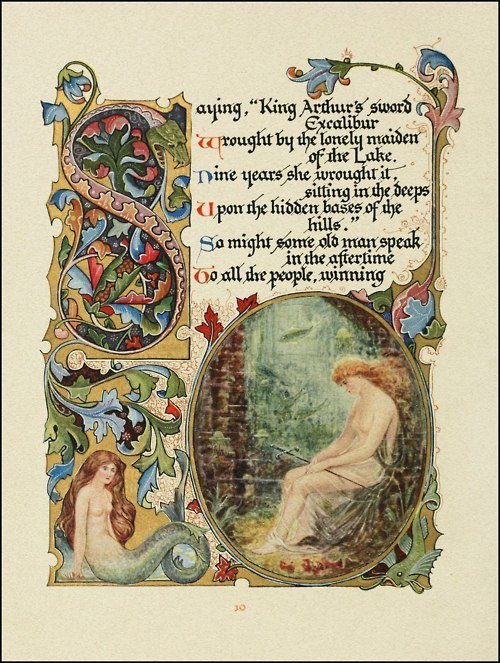 Saying, "King Arthur's sword
Excalibur
Wrought by the lonely maiden
of the Lake.
Nine years she wrought it,
sitting in the deeps
Upon the hidden bases of the
hills."
So might some old man speak
in the aftertime
To all the people, winning
30